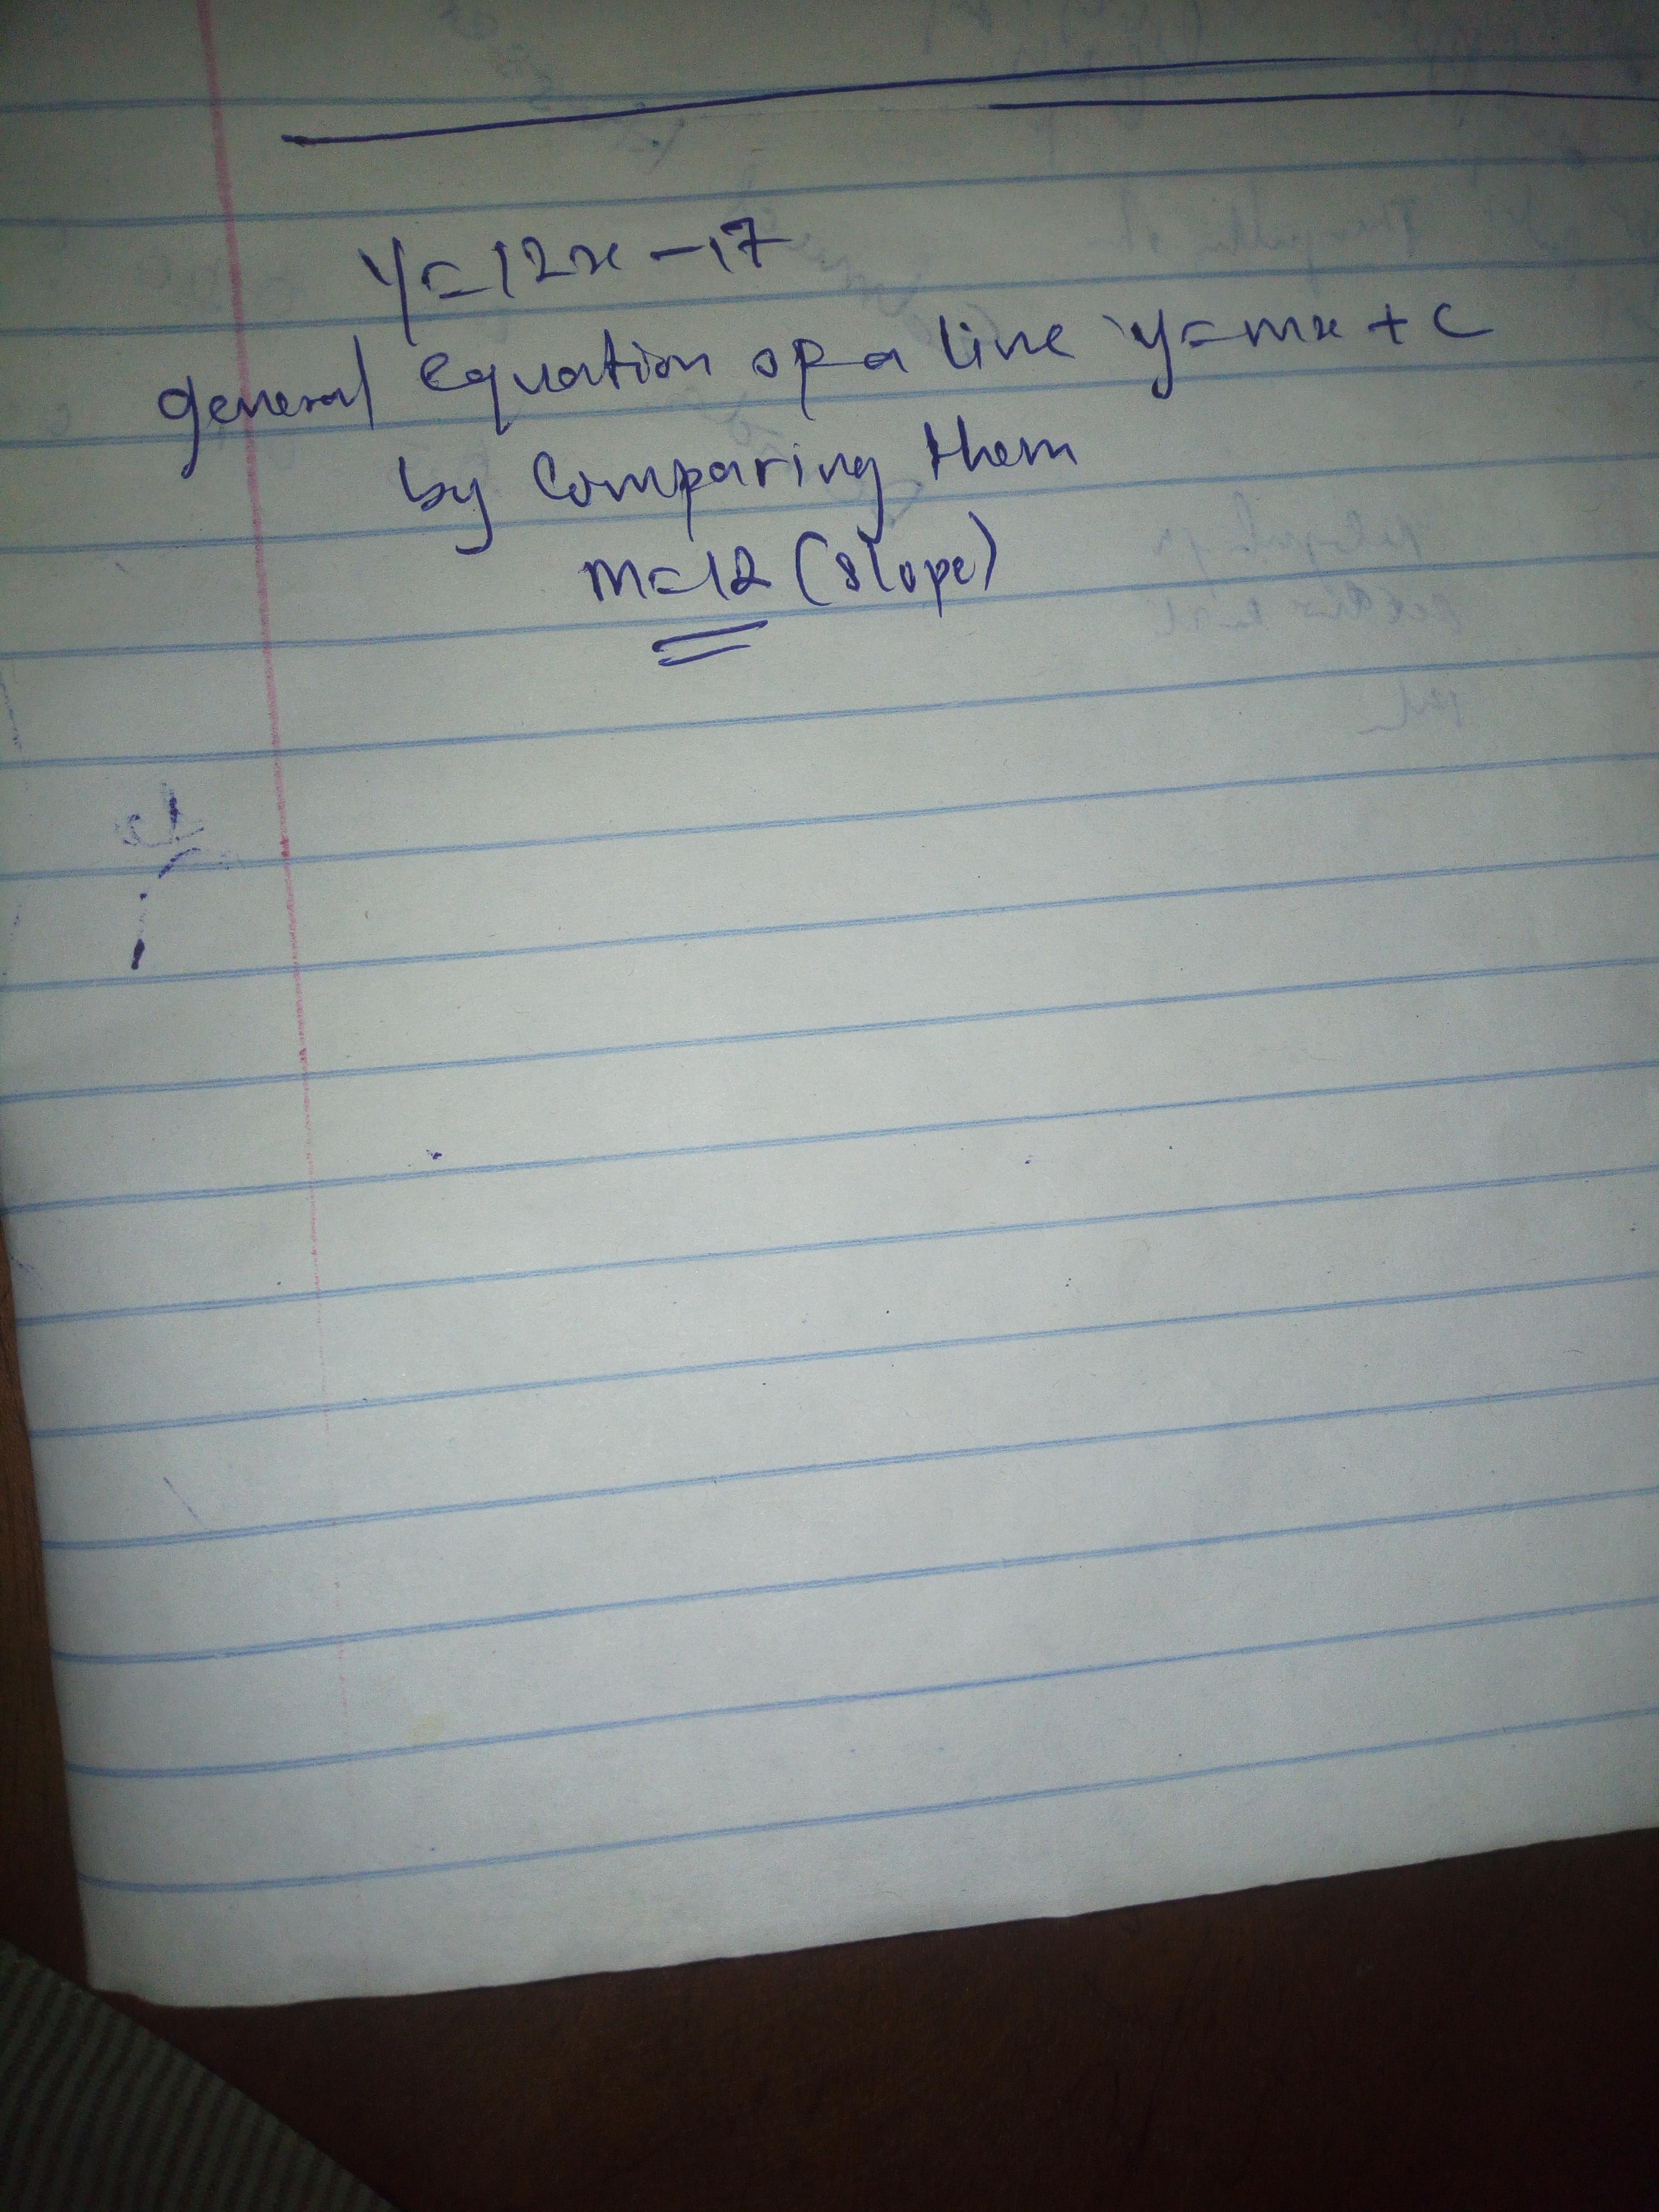 y=12x-17
general equation of a line y=mx+c
by comparing them
m=12 (slope)